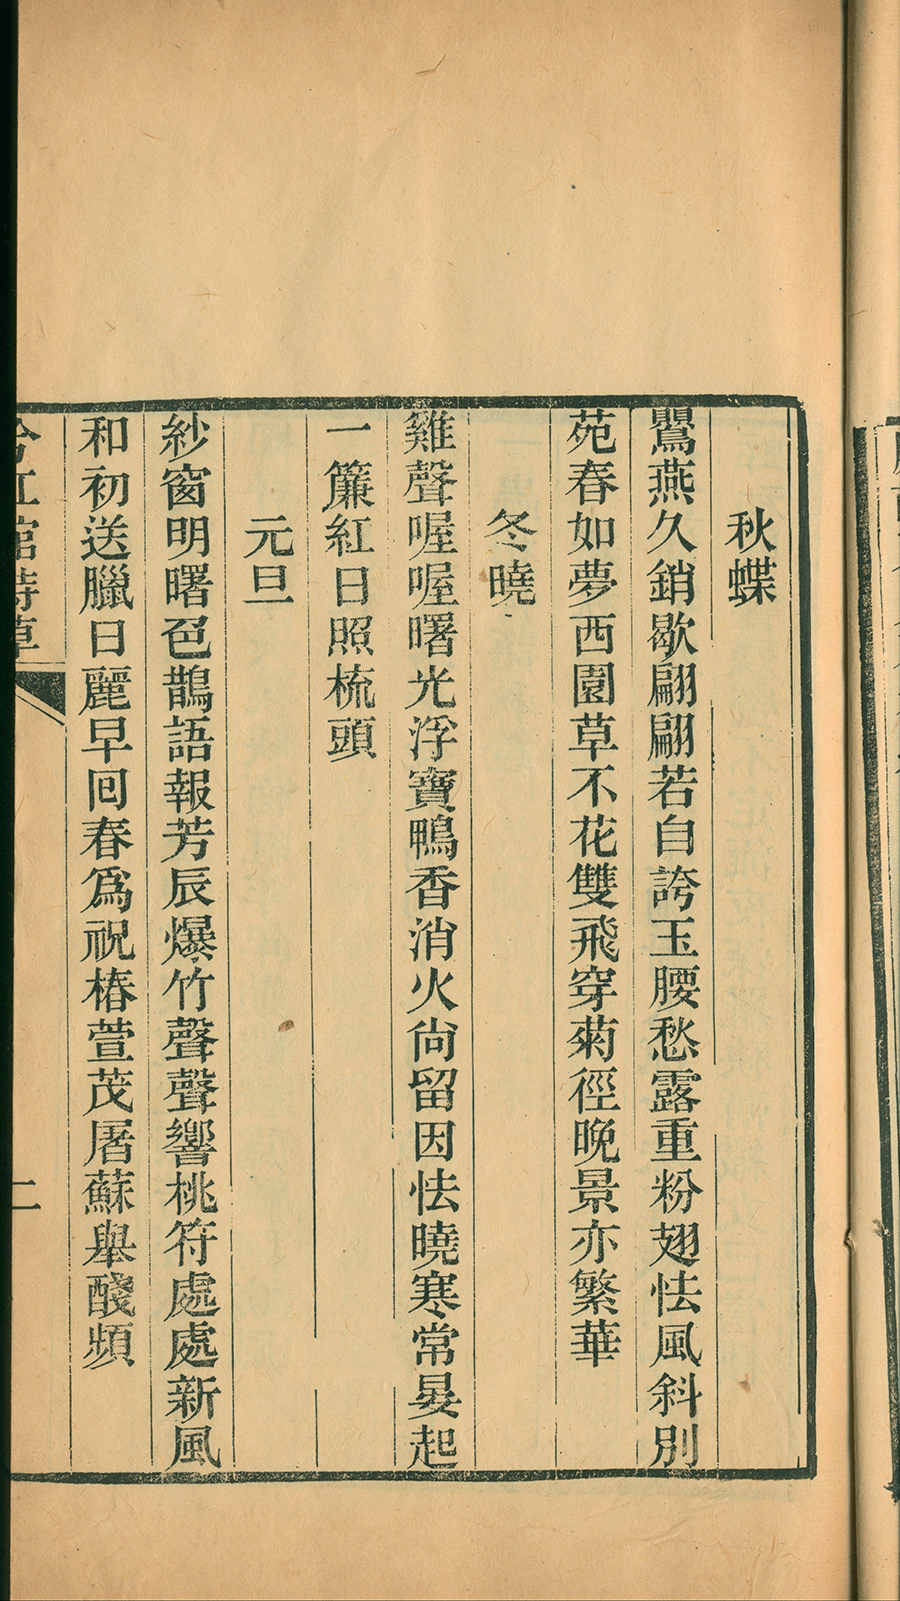 秋蝶
鸎燕久銷歇翩翩若自誇玉腰愁露重粉翅怯風斜別
苑春如夢西園草不花雙飛穿菊徑晩景亦繁華
冬曉
雞聲喔喔曙光浮寶鴨香消火尙留因怯曉寒常晏起
一簾紅日照梳頭
元旦
紗窗明曙色鵲語報芳辰爆竹聲聲響桃符處處新風
和初送臘日麗早回春爲祝椿萱茂屠蘇舉醆頻
紅館詩草
二